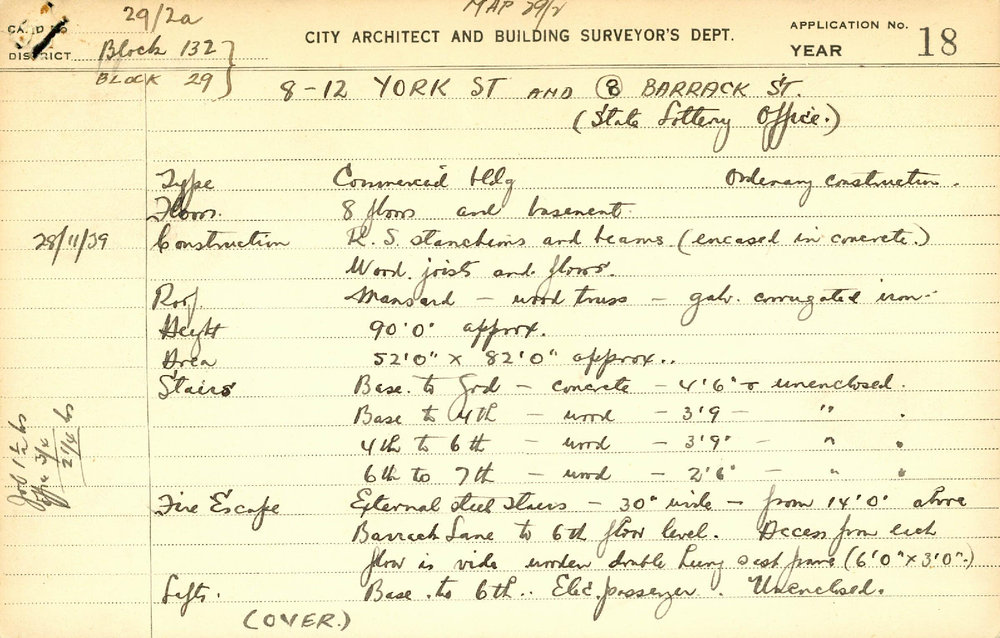 29/2a
MAP 29/2
CARD No
DISTRICT Block 132
BLOCK 29
CITY ARCHITECT AND BUILDING SURVEYOR'S DEPT.
APPLICATION No.
YEAR
18
8-12 YORK ST AND 8 BARRACK ST.
(State Lottery Office.)
Type Commercial bldg Ordinary construction.
Floors. 8 floors and basement.
28/11/39 Construction R. S. stanchions and beams (encased in concrete.)
Wood joists and floors.
Roof Mansard - wood truss - galv. corrugated iron.
Height 90'0" approx.
Area 52'0" x 82'0" approx..
Stairs Base. to Grd - concrete - 4'6" unenclosed.
Base to 4th - wood - 3'9 - " .
4th to 6th - wood - 3'9" - " .
6th to 7th - wood - 2'6" - " .
Job 1 1/2 hrs
Office 3/4
2 1/4 hrs
Fire Escape External steel stairs - 30" wide - from 14'0" above
Barrack Lane to 6th floor level. Access from each
floor is vide wooden double hung sash frame (6'0" x 3'0".)
Lifts. Base. to 6th.. Elec. passenger. Unenclosed.
(OVER.)